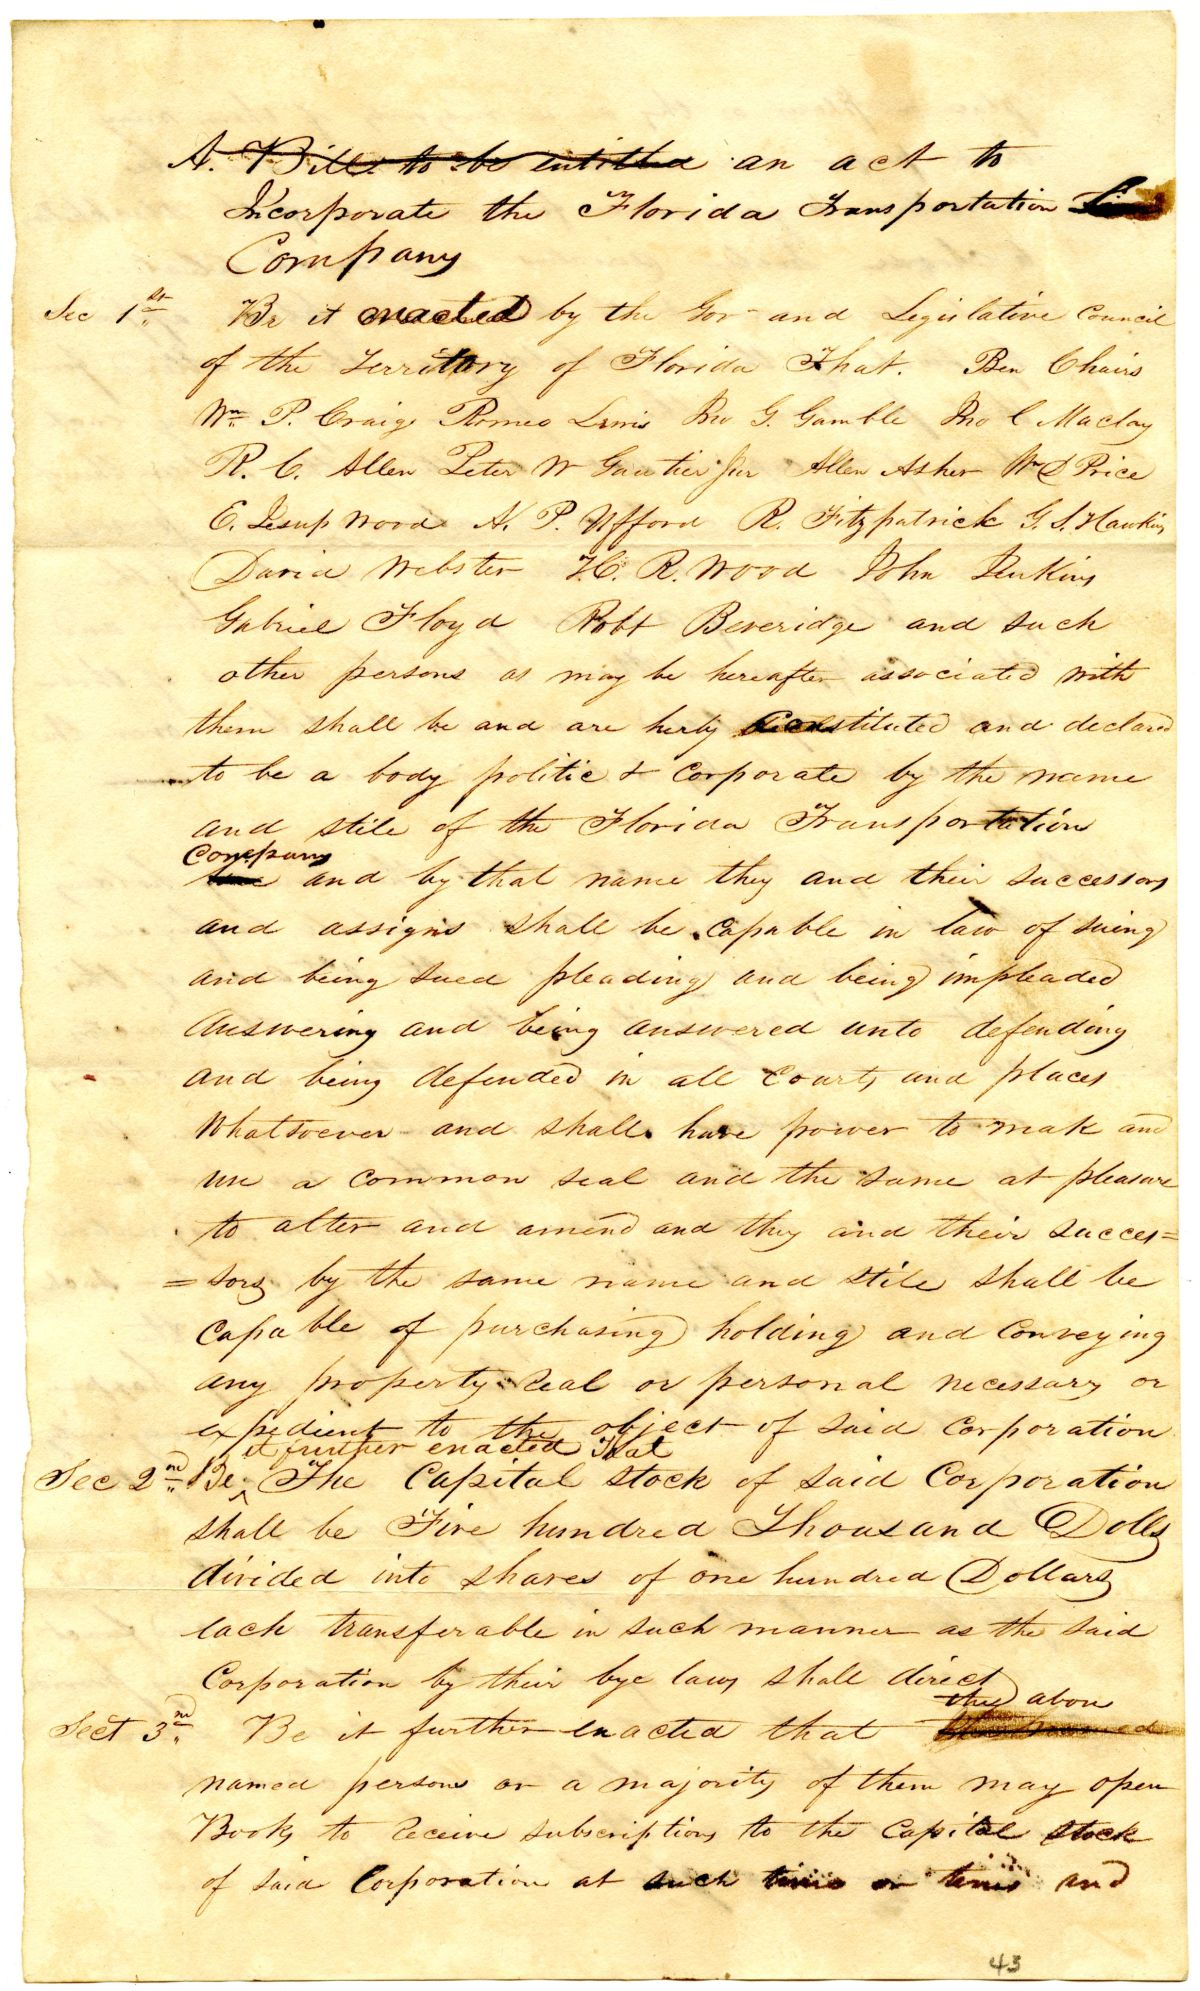 A. Bill to be entitled an act to
Incorporate the Florida Transportation
Company
Sec 1st Be it enacted by the Gov and Legislative Council
of the Territory of Florida That. Ben Chairs
Wm P. Craig Romeo Lewis Jno G. Gamble Jno C Maclay
R. C. Allen Peter W Gautier Jur Allen Asher Wm D Price
E. Jesup Wood A. P. Ufford R. Fitzpatrick G. S. Hawkins
David Webster H. R. Wood John Jenkins
Gabriel Floyd Robt Beveridge and such
other persons as may be hereafter associated with
them shall be and are herby Constituted and declared
to be a body politic & Corporate by the name
and stile of the Florida Transportation
Company
and by that name they and their successors
and assigns shall be capable in law of suing
and being sued pleading and being impleaded
answering and being answered unto defending
and being defended in all Courts and places
Whatsoever and shall have power to mak and
use a common seal and the same at pleasure
to alter and amend and they and their succes=
=sors by the same name and stile shall be
Capable of purchasing holding and Conveying
any property real or personal necessary or
expedient to the object of said Corporation
it further enacted That
Sec 2nd Be ^ The Capital stock of said Corporation
shall be Five hundred Thousand Dolls
divided into shares of one hundred Dollars
each transferable in such manner as the said
Corporation by their bye laws shall direct
the above
Sect 3rd Be it further enacted that
named persons or a majority of them may open
Books to receive subscriptions to the Capital stock
of said Corporation at such time or times and
43